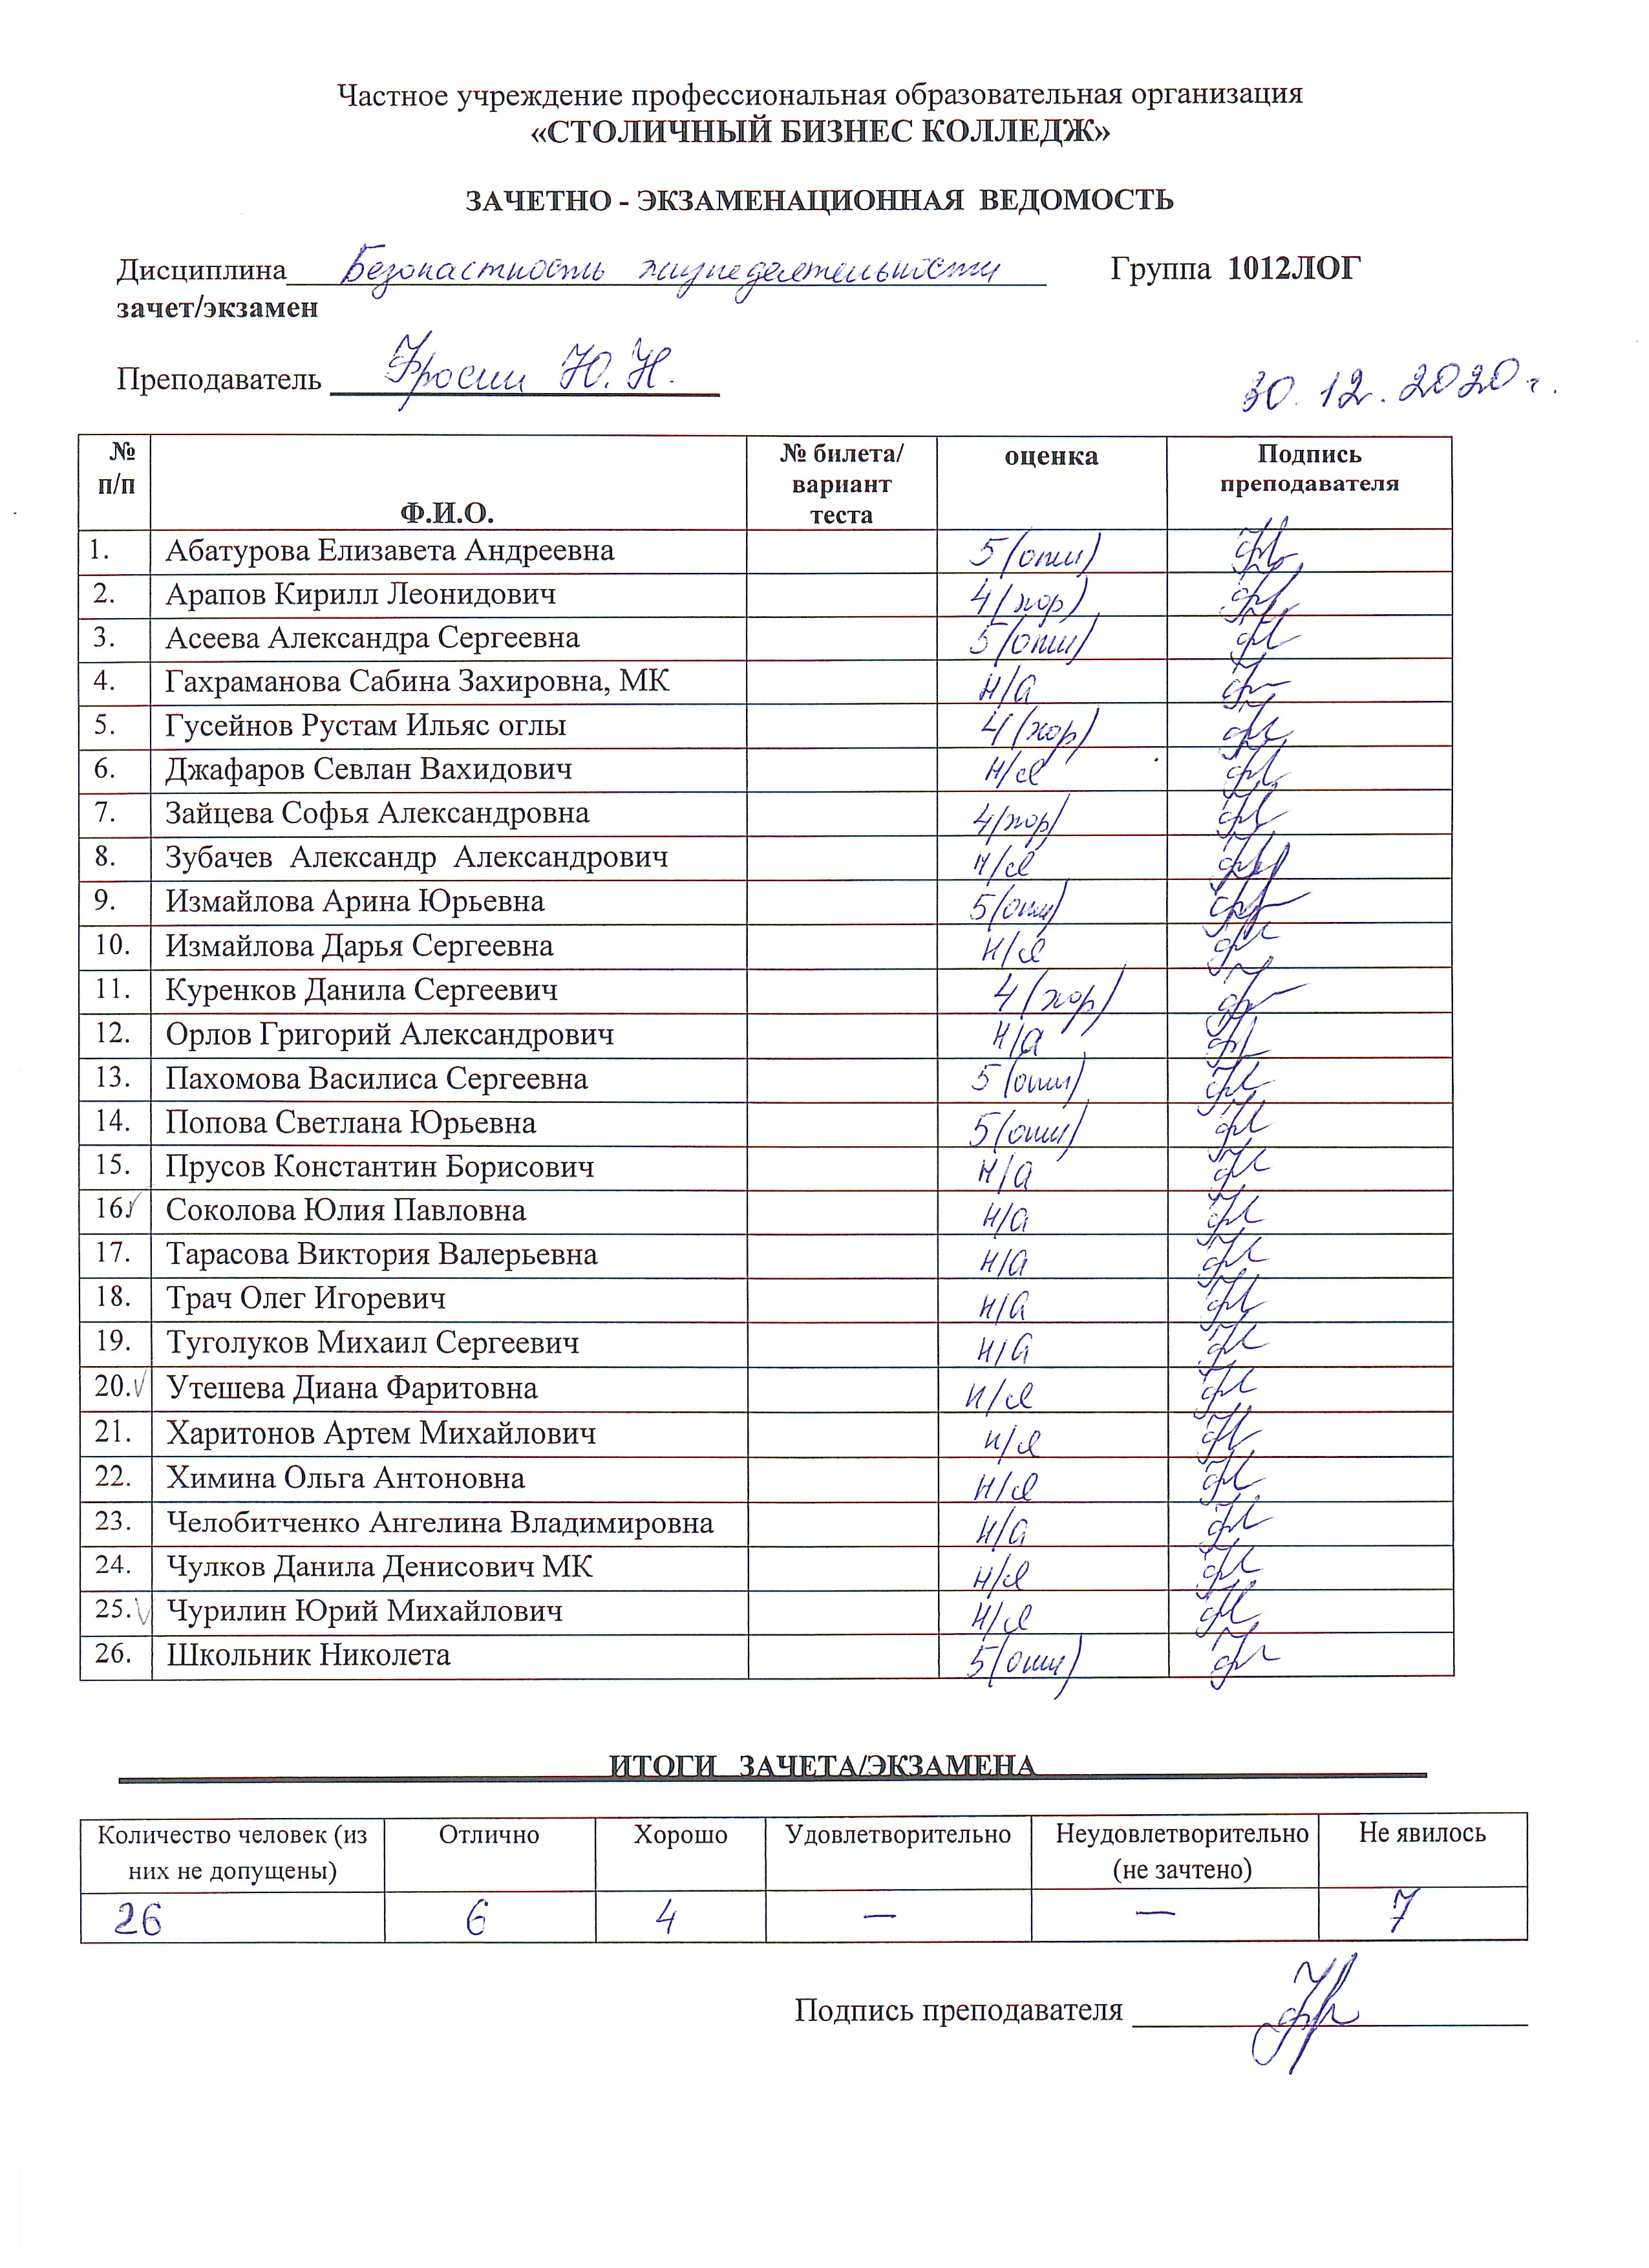 Частное учреждение профессиональная образовательная организация
«СТОЛИЧНЫЙ БИЗНЕС КОЛЛЕДЖ»
ЗАЧЕТНО - ЭКЗАМЕНАЦИОННАЯ ВЕДОМОСТЬ
Дисциплина Безопастность жизнедеятельности Группа 1012ЛОГ
зачет/экзамен
Преподаватель Ю.Н.
30.12.2020 г.
№ п/п Ф.И.О. № билета/ вариант теста оценка Подпись преподавателя
1. Абатурова Елизавета Андреевна 5 (отл)
2. Арапов Кирилл Леонидович 4 (хор)
3. Асеева Александра Сергеевна 5 (отл)
4. Гахраманова Сабина Захировна, МК н/а
5. Гусейнов Рустам Ильяс оглы 4 (хор)
6. Джафаров Севлан Вахидович н/я
7. Зайцева Софья Александровна 4 (хор)
8. Зубачев Александр Александрович н/я
9. Измайлова Арина Юрьевна 5 (отл)
10. Измайлова Дарья Сергеевна н/я
11. Куренков Данила Сергеевич 4 (хор)
12. Орлов Григорий Александрович н/а
13. Пахомова Василиса Сергеевна 5 (отл)
14. Попова Светлана Юрьевна 5 (отл)
15. Прусов Константин Борисович н/а
16. Соколова Юлия Павловна н/а
17. Тарасова Виктория Валерьевна н/а
18. Трач Олег Игоревич н/а
19. Туголуков Михаил Сергеевич н/а
20. Утешева Диана Фаритовна н/я
21. Харитонов Артем Михайлович н/я
22. Химина Ольга Антоновна н/я
23. Челобитченко Ангелина Владимировна н/а
24. Чулков Данила Денисович МК н/я
25. Чурилин Юрий Михайлович н/я
26. Школьник Николета 5 (отл)
ИТОГИ ЗАЧЕТА/ЭКЗАМЕНА
Количество человек (из них не допущены) Отлично Хорошо Удовлетворительно Неудовлетворительно (не зачтено) Не явилось
26 6 4 — — 7
Подпись преподавателя